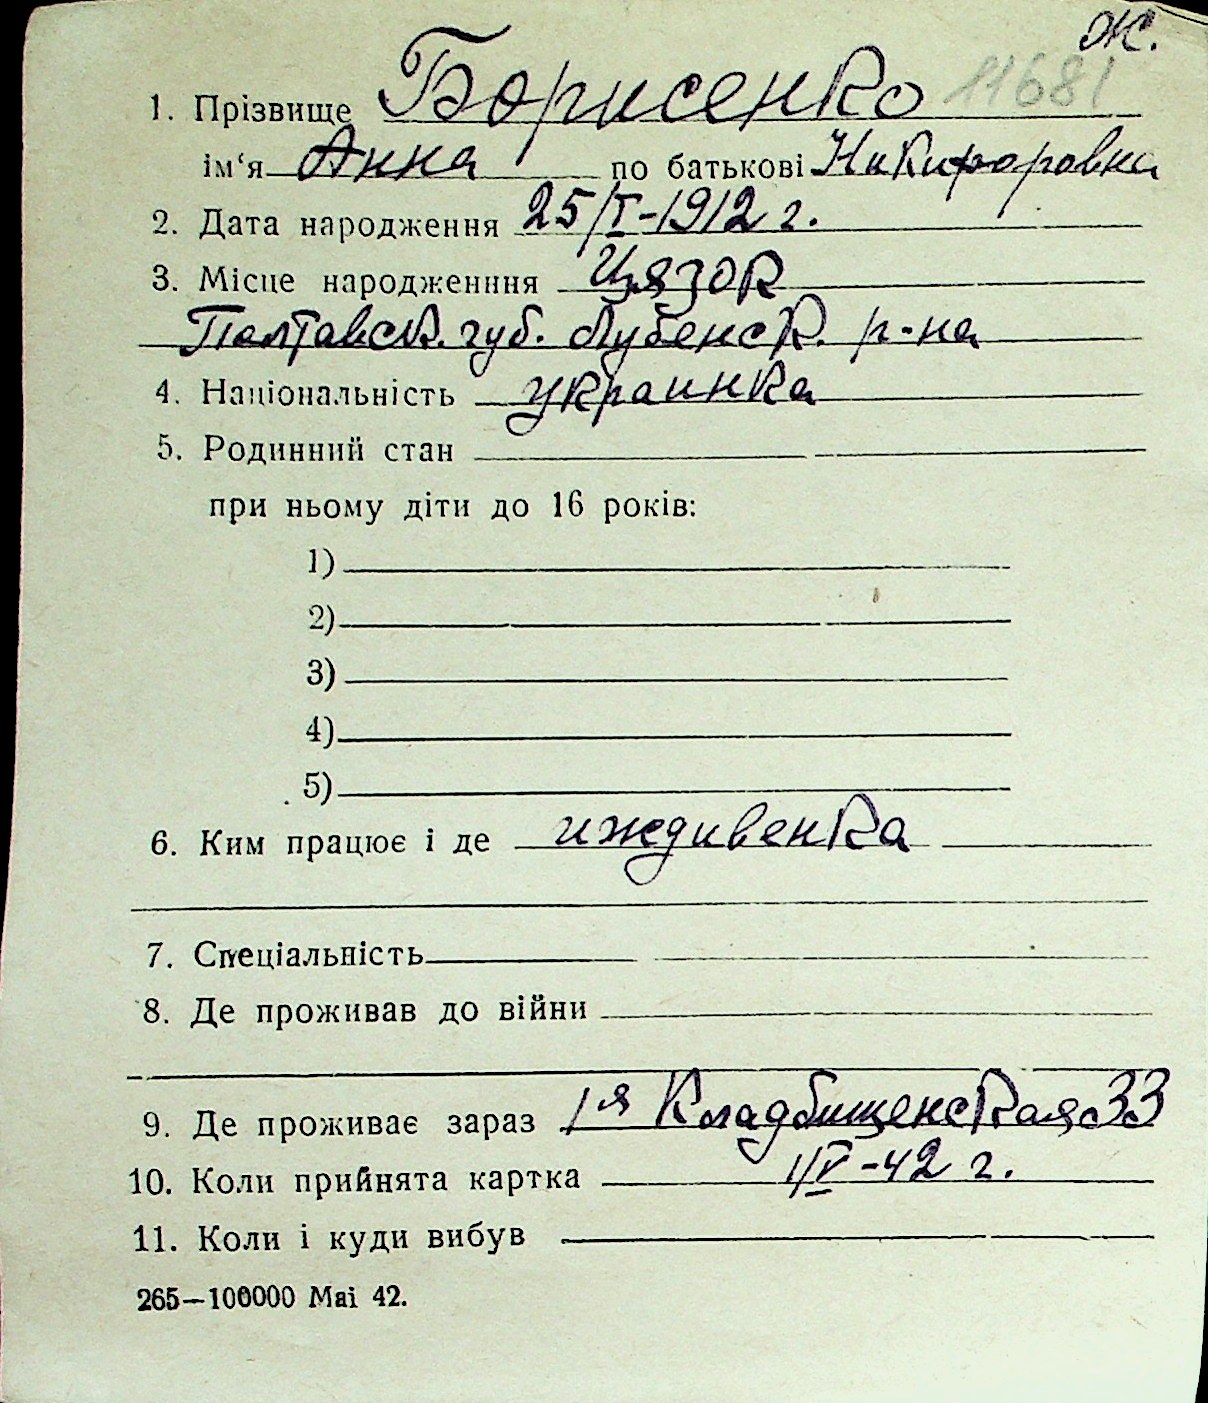 Ж.
11681
1. Прізвище Борисенко
ім‘я Анна по батькові Никифоровна
2. Дата народження 25/I-1912 г.
3. Місце народженння Цязок
Полтавск. губ. Лубенск. р-на
4. Національність украинка
5. Родинний стан
при ньому діти до 16 років:
1)
2)
3)
4)
5)
6. Ким працює і де иждивенка
7. Спеціальність
8. Де проживав до війни
9. Де проживає зараз 1я Кладбищенская 33
10. Коли прийнята картка 1/V-42 г.
11. Коли і куди вибув
265—100000 Маі 42.